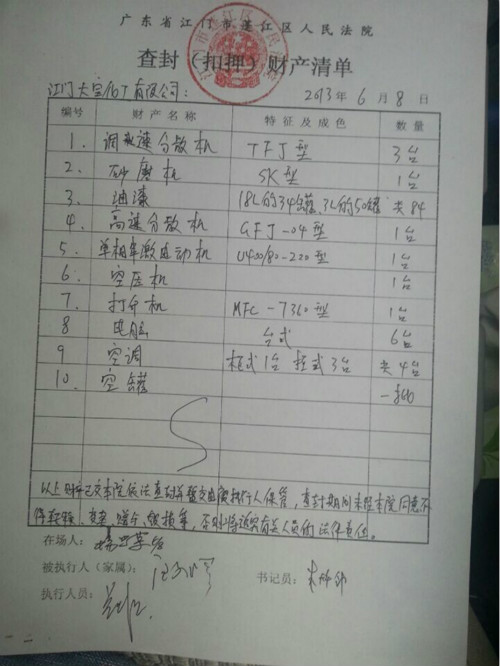 广东省江门市蓬江区人民法院
查封（扣押）财产清单
江门大宝化工有限公司： 2013年6月8日
编号 财产名称 特征及成色 数量
1. 调速分散机 TFJ型 3台
2. 砂磨机 SK型 1台
3. 油漆 18L的34罐、3L的50罐 共84
4. 高速分散机 GFJ-04型 1台
5. 单相串激电动机 U400/80-220型 1台
6. 空压机 1台
7. 打印机 MFC-7360型 1台
8 电脑 台式 6台
9 空调 柜式1台 挂式3台 共4台
10. 空罐 一批
以上财产已交本院依法查封并暂交由被执行人保管，查封期间未经本院同意不
得转移、变卖、赠与、毁损等，否则将追究有关人员的法律责任。
在场人：
被执行人（家属）： 书记员：
执行人员：